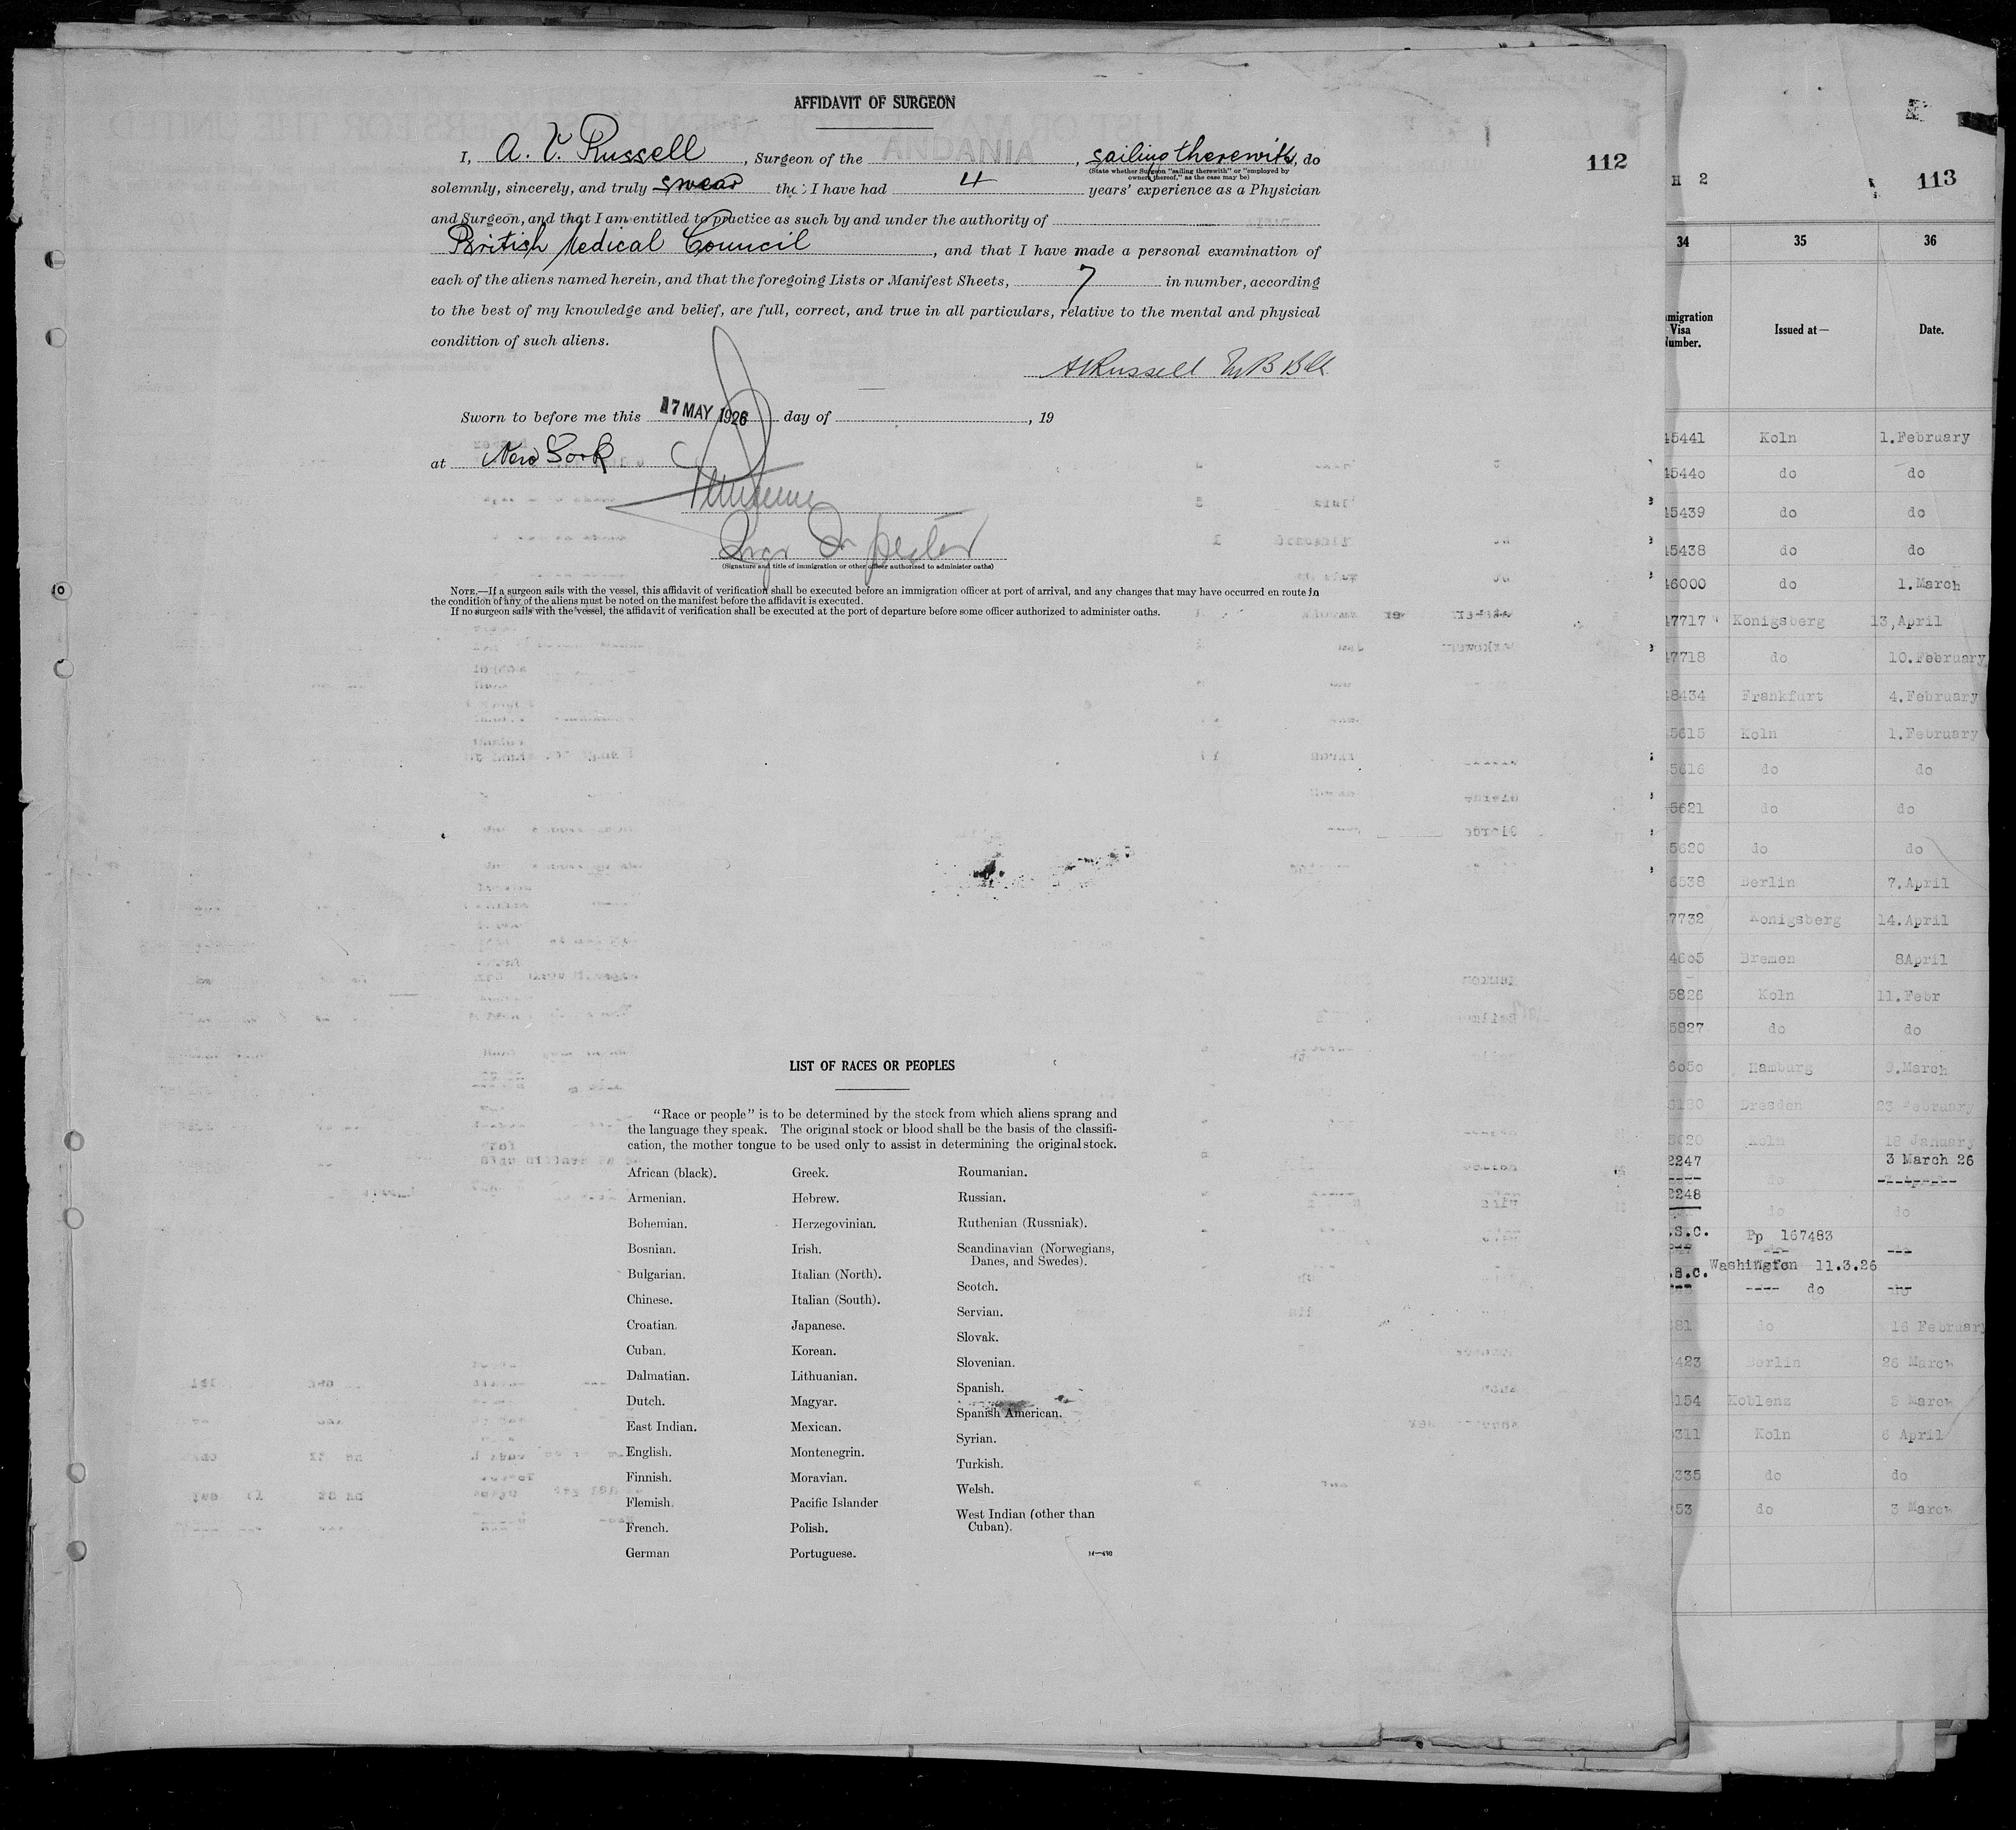 AFFIDAVIT OF SURGEON
I, A. V. Russell, Surgeon of the, sailing therewith, do
(State whether Surgeon "sailing therewith" or "employed by
owners thereof," as the case may be)
solemnly, sincerely, and truly swear the I have had 4 years' experience as a Physician
and Surgeon, and that I am entitled to practice as such by and under the authority of
British Medical Council, and that I have made a personal examination of
each of the aliens named herein, and that the foregoing Lists or Manifest Sheets, 7 in number, according
to the best of my knowledge and belief, are full, correct, and true in all particulars, relative to the mental and physical
condition of such aliens.
AVRussell M B
Sworn to before me this 17 MAY 1926 day of, 19
at New York
(Signature and title of immigration or other officer authorized to administer oaths)
NOTE.—If a surgeon sails with the vessel, this affidavit of verification shall be executed before an immigration officer at port of arrival, and any changes that may have occurred en route in
the condition of any of the aliens must be noted on the manifest before the affidavit is executed.
If no surgeon sails with the vessel, the affidavit of verification shall be executed at the port of departure before some officer authorized to administer oaths.
112
10
LIST OF RACES OR PEOPLES
"Race or people" is to be determined by the stock from which aliens sprang and
the language they speak. The original stock or blood shall be the basis of the classifi-
cation, the mother tongue to be used only to assist in determining the original stock.
African (black).
Armenian.
Bohemian.
Bosnian.
Bulgarian.
Chinese.
Croatian.
Cuban.
Dalmatian.
Dutch.
East Indian.
English.
Finnish.
Flemish.
French.
German
Greek.
Hebrew.
Herzegovinian.
Irish.
Italian (North).
Italian (South).
Japanese.
Korean.
Lithuanian.
Magyar.
Mexican.
Montenegrin.
Moravian.
Pacific Islander
Polish.
Portuguese.
Roumanian.
Russian.
Ruthenian (Russniak).
Scandinavian (Norwegians,
Danes, and Swedes).
Scotch.
Servian.
Slovak.
Slovenian.
Spanish.
Spanish American.
Syrian.
Turkish.
Welsh.
West Indian (other than
Cuban).
H 2
113
34 35 36
migration
Visa
Number.
Issued at—
Date.
45441 Koln 1.February
45440 do do
45439 do do
45438 do do
46000 do 1.March
47717 Konigsberg 13,April
47718 do 10.February
48434 Frankfurt 4.February
5615 Koln 1.February
5616 do do
5621 do do
5620 do do
6538 Berlin 7.April
7732 Konigsberg 14.April
4605 Bremen 8April
5826 Koln 11.Febr
5827 do do
6050 Hamburg 9.March
Dresden 23 February
Koln 18 January
2247 3 March 26
2248 do
do do
.S.C. Pp 167483
.S.C. Washington 11.3.26
do
81 do 16 February
423 Berlin 26 March
154 Koblenz 5 March
311 Koln 6 April
335 do do
53 do 3 March